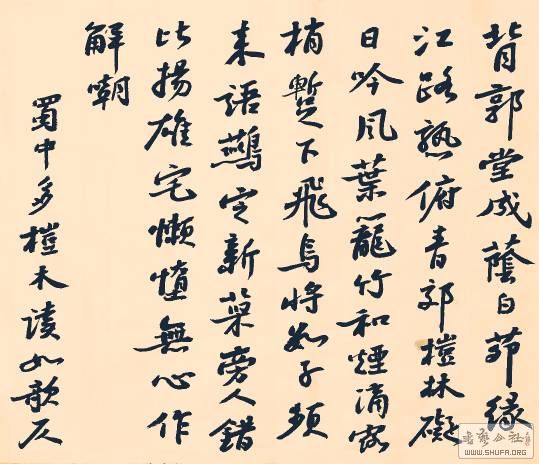 背郭堂成蔭白茆緣
江路熟俯青郊榿林礙
日吟風葉籠竹和煙滴露
梢暫下飛烏將數子頻
来語鷰定新巢旁人錯
比揚雄宅懶惰無心作
解嘲
蜀中多榿木讀如欹仄
WWW.SHUFA.ORG